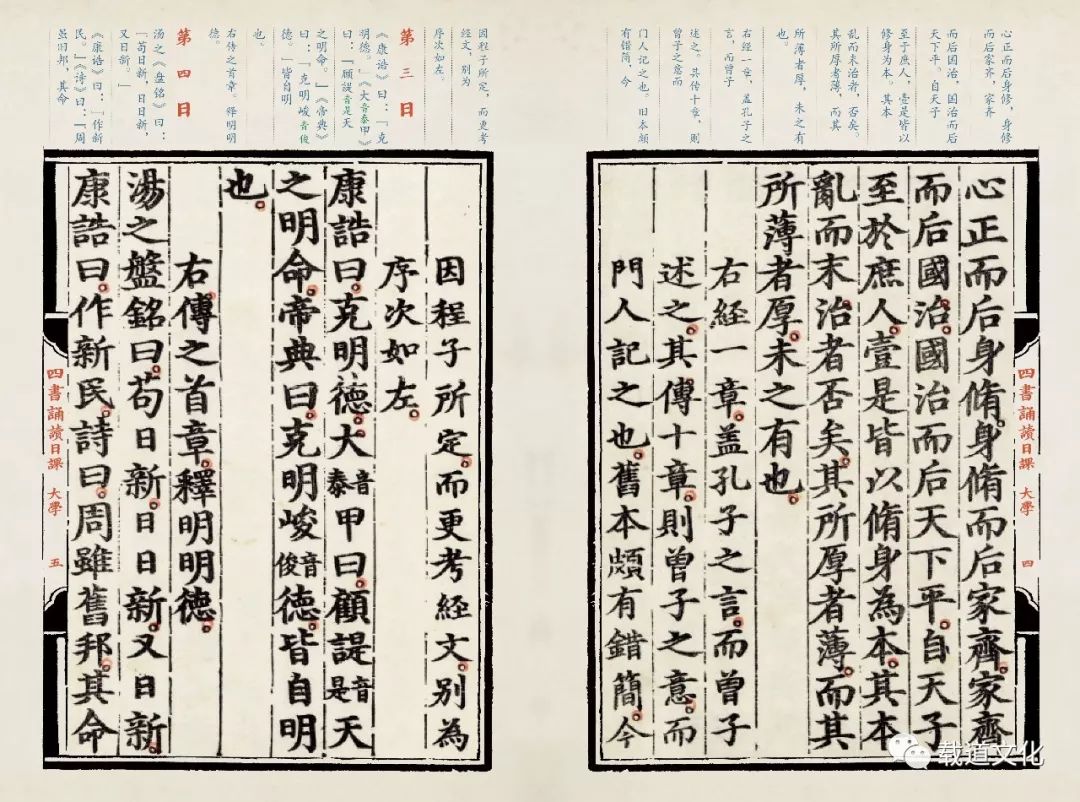 心正而后身修，身修
而后家齐，家齐
而后国治，国治而后
天下平。自天子
至于庶人，壹是皆以
修身为本。其本
乱而末治者，否矣。
其所厚者薄，而其
所薄者厚，未之有
也。
右经一章，盖孔子之
言，而曾子
述之。其传十章，则
曾子之意而
门人记之也。旧本颇
有错简，今
心正而后身脩。身脩而后家齊。家齊
而后國治。國治而后天下平。自天子
至於庶人。壹是皆以脩身為本。其本
亂而末治者否矣。其所厚者薄。而其
所薄者厚。未之有也。
右經一章。盖孔子之言。而曾子
述之。其傳十章。則曾子之意。而
門人記之也。舊本頗有錯簡。今
四書誦讀日課 大學 四
因程子所定，而更考
经文，别为
序次如左。
第三日
《康诰》曰：「克
明德。」《大音泰甲》
曰：「顾諟音是天
之明命。」《帝典》
曰：「克明峻音俊
德。」皆自明
也。
右传之首章。释明明
德。
第四日
汤之《盘铭》曰：
「苟日新，日日新，
又日新。」
《康诰》曰：「作新
民。」《诗》曰：「周
虽旧邦，其命
因程子所定。而更考經文。别為
序次如左。
康誥曰。克明德。大音泰甲曰。顧諟音是天
之明命。帝典曰。克明峻音俊德。皆自明
也。
右傳之首章。釋明明德。
湯之盤銘曰。苟日新。日日新。又日新。
康誥曰。作新民。詩曰。周雖舊邦。其命
四書誦讀日課 大學 五
载道文化